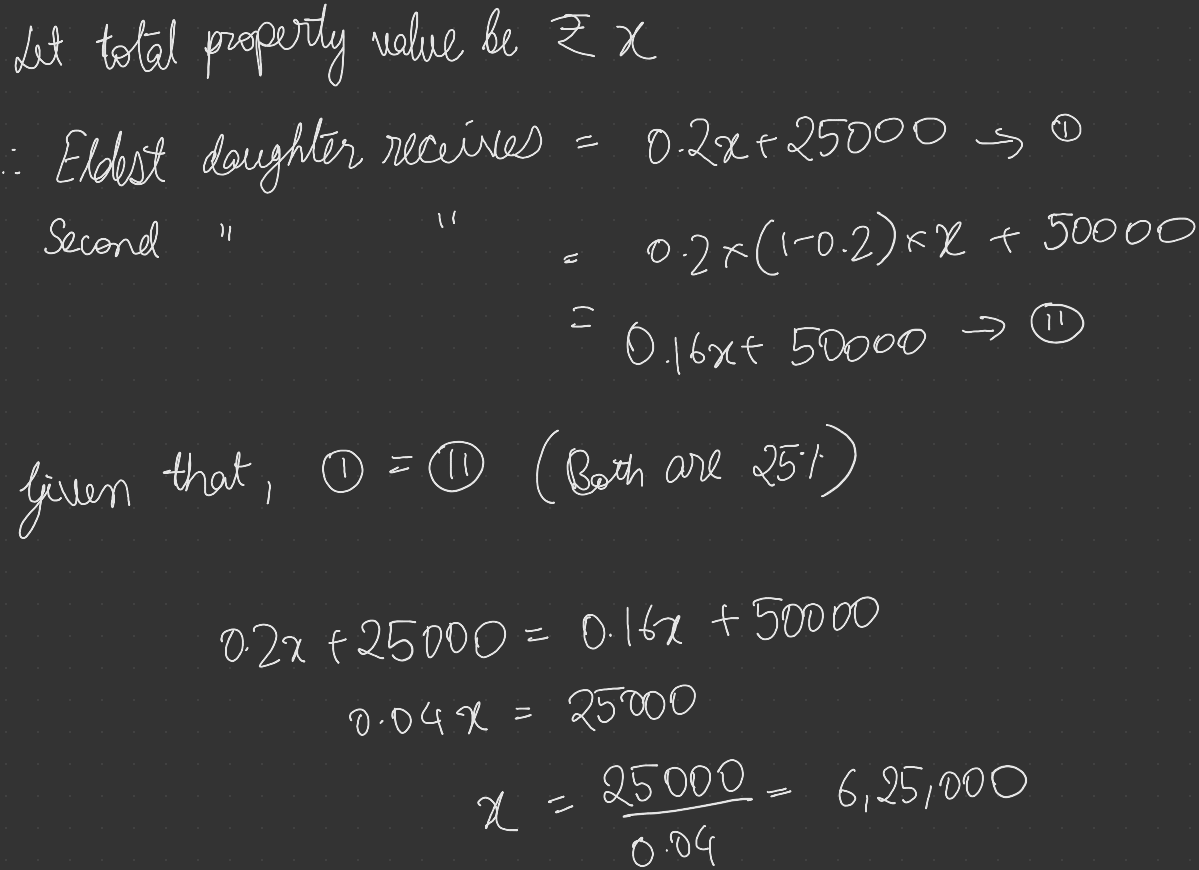 Let total property value be ₹ x
∴ Eldest daughter receives = 0.2x + 25000 → ①
Second " " = 0.2 × (1-0.2) × x + 50000
= 0.16x + 50000 → ⑪
Given that, ① = ⑪ (Both are 25%)
0.2x + 25000 = 0.16x + 50000
0.04x = 25000
x = 25000/0.04 = 6,25,000